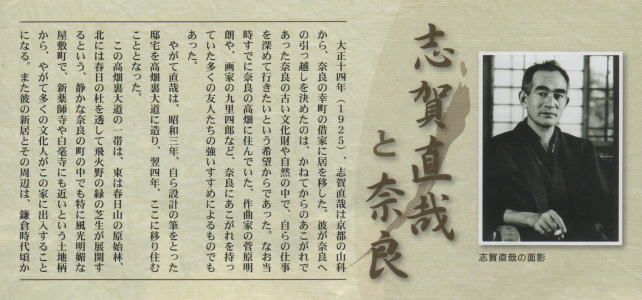 志賀直哉
と奈良
大正十四年（1925）、志賀直哉は京都の山科
から、奈良の幸町の借家に居を移した。彼が奈良へ
の引っ越しを決めたのは、かねてからのあこがれで
あった奈良の古い文化財や自然の中で、自らの仕事
を深めて行きたいという希望からであった。なお当
時すでに奈良の高畑に住んでいた、作曲家の菅原明
朗や、画家の九里四郎など、奈良にあこがれを持っ
ていた多くの友人たちの強いすすめによるものでも
あった。
やがて直哉は、昭和三年、自ら設計の筆をとった
邸宅を高畑裏大道に造り、翌四年、ここに移り住む
こととなった。
この高畑裏大道の一帯は、東は春日山の原始林、
北には春日の杜を透して飛火野の緑の芝生が展開す
るという、静かな奈良の町の中でも特に風光明媚な
屋敷町で、新薬師寺や白毫寺にも近いという土地柄
から、やがて多くの文化人がこの家に出入りすること
になる。また彼の新居とその周辺は、鎌倉時代頃か
志賀直哉の面影